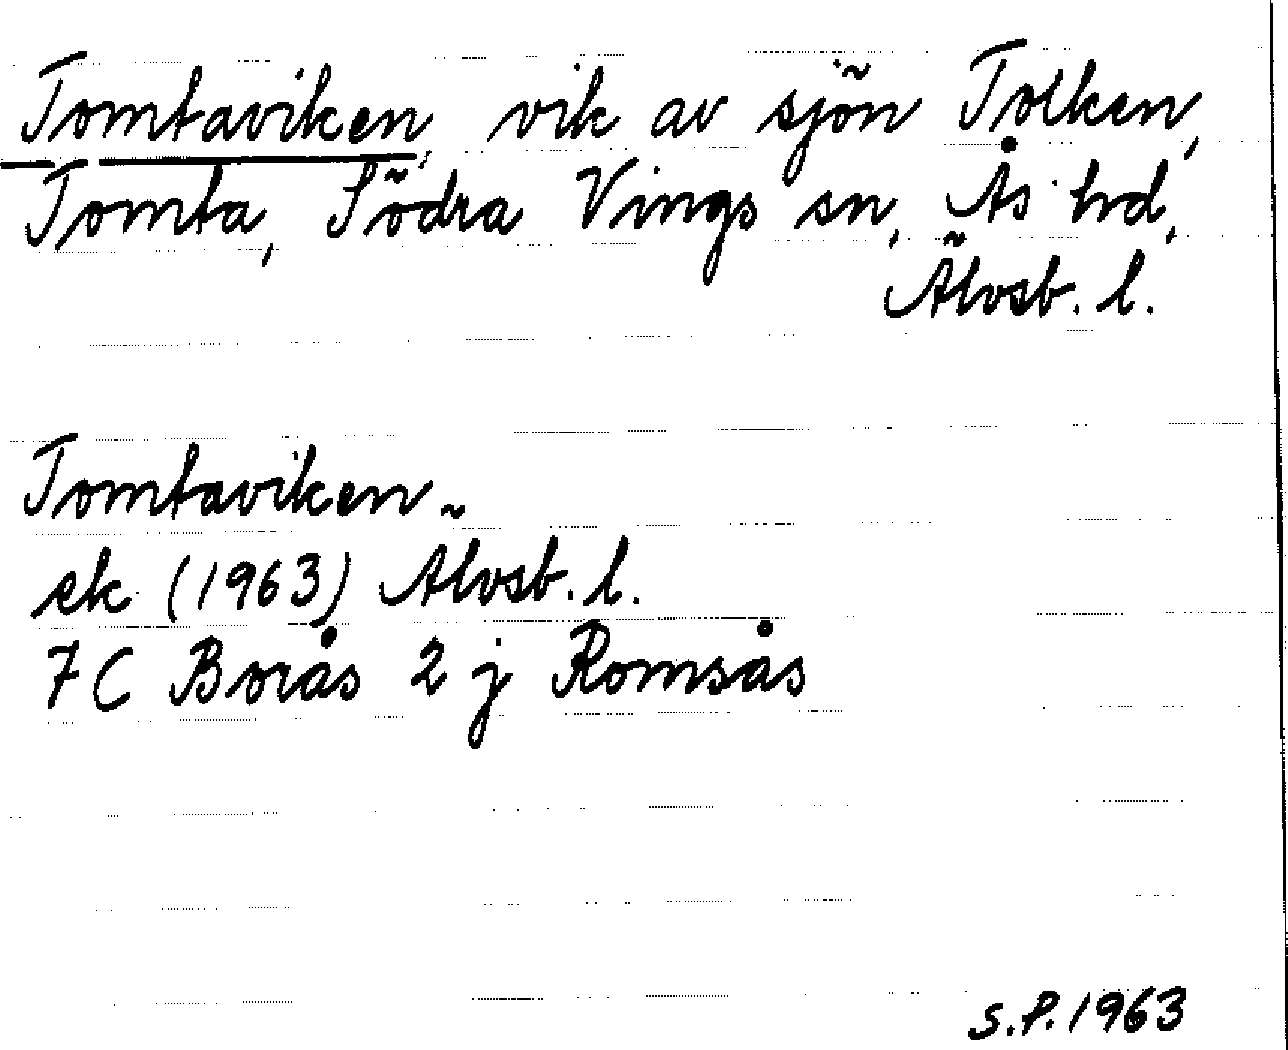 Tomtaviken, vik av sjön Tolken,
Tomta, Södra Vings sn, Ås hd,
Älvsb. l.
Tomtaviken
ek (1963) Älvsb. l.
7C Borås 2 j Romsås
S.P. 1963